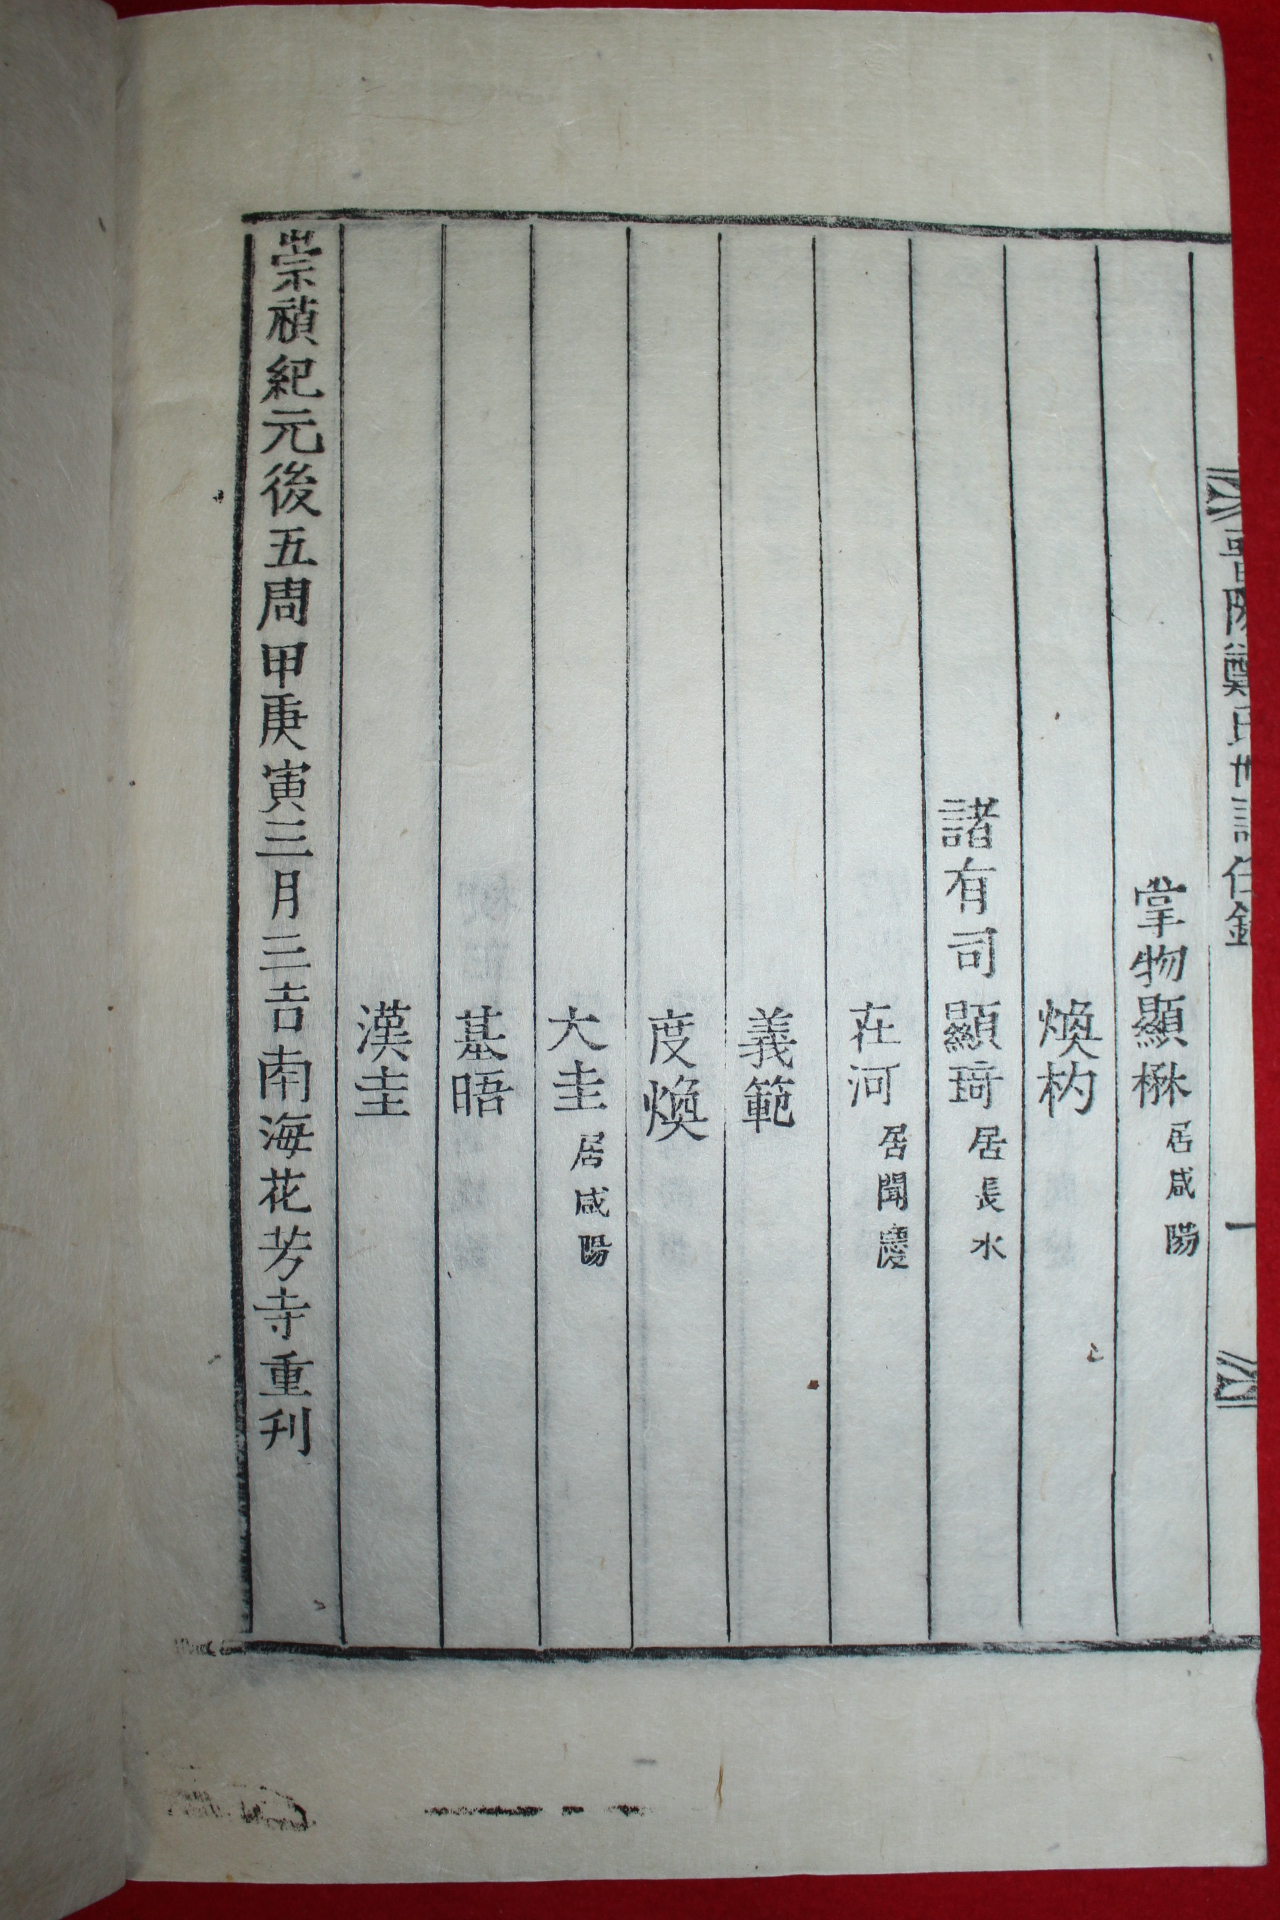 晋陽鄭氏世譜任錄 一
掌物顯楙居咸陽
煥杓
諸有司顯琦居長水
在河居聞慶
義範
度煥
大圭居咸陽
基晤
漢圭
崇禎紀元後五周甲庚寅三月三吉南海花芳寺重刊